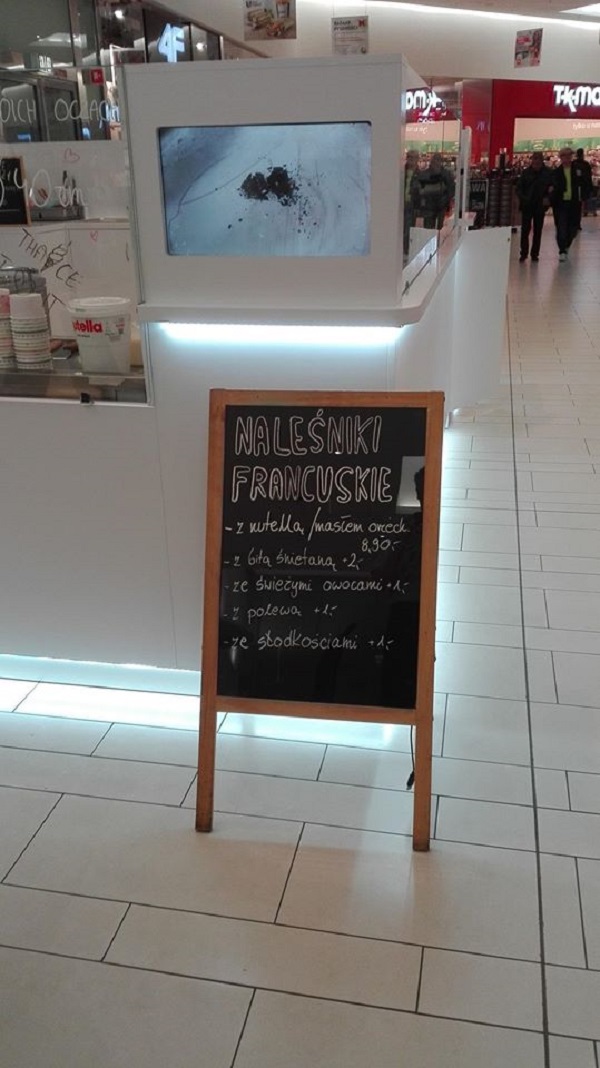 4F
TK·MA
nutella
THAI
ICE
NALEŚNIKI
FRANCUSKIE
- z nutellą /masłem orzech
8,90,-
- z bitą śmietaną +2,-
- ze świeżymi owocami +1,-
- z polewą +1,-
- ze słodkościami +1,-